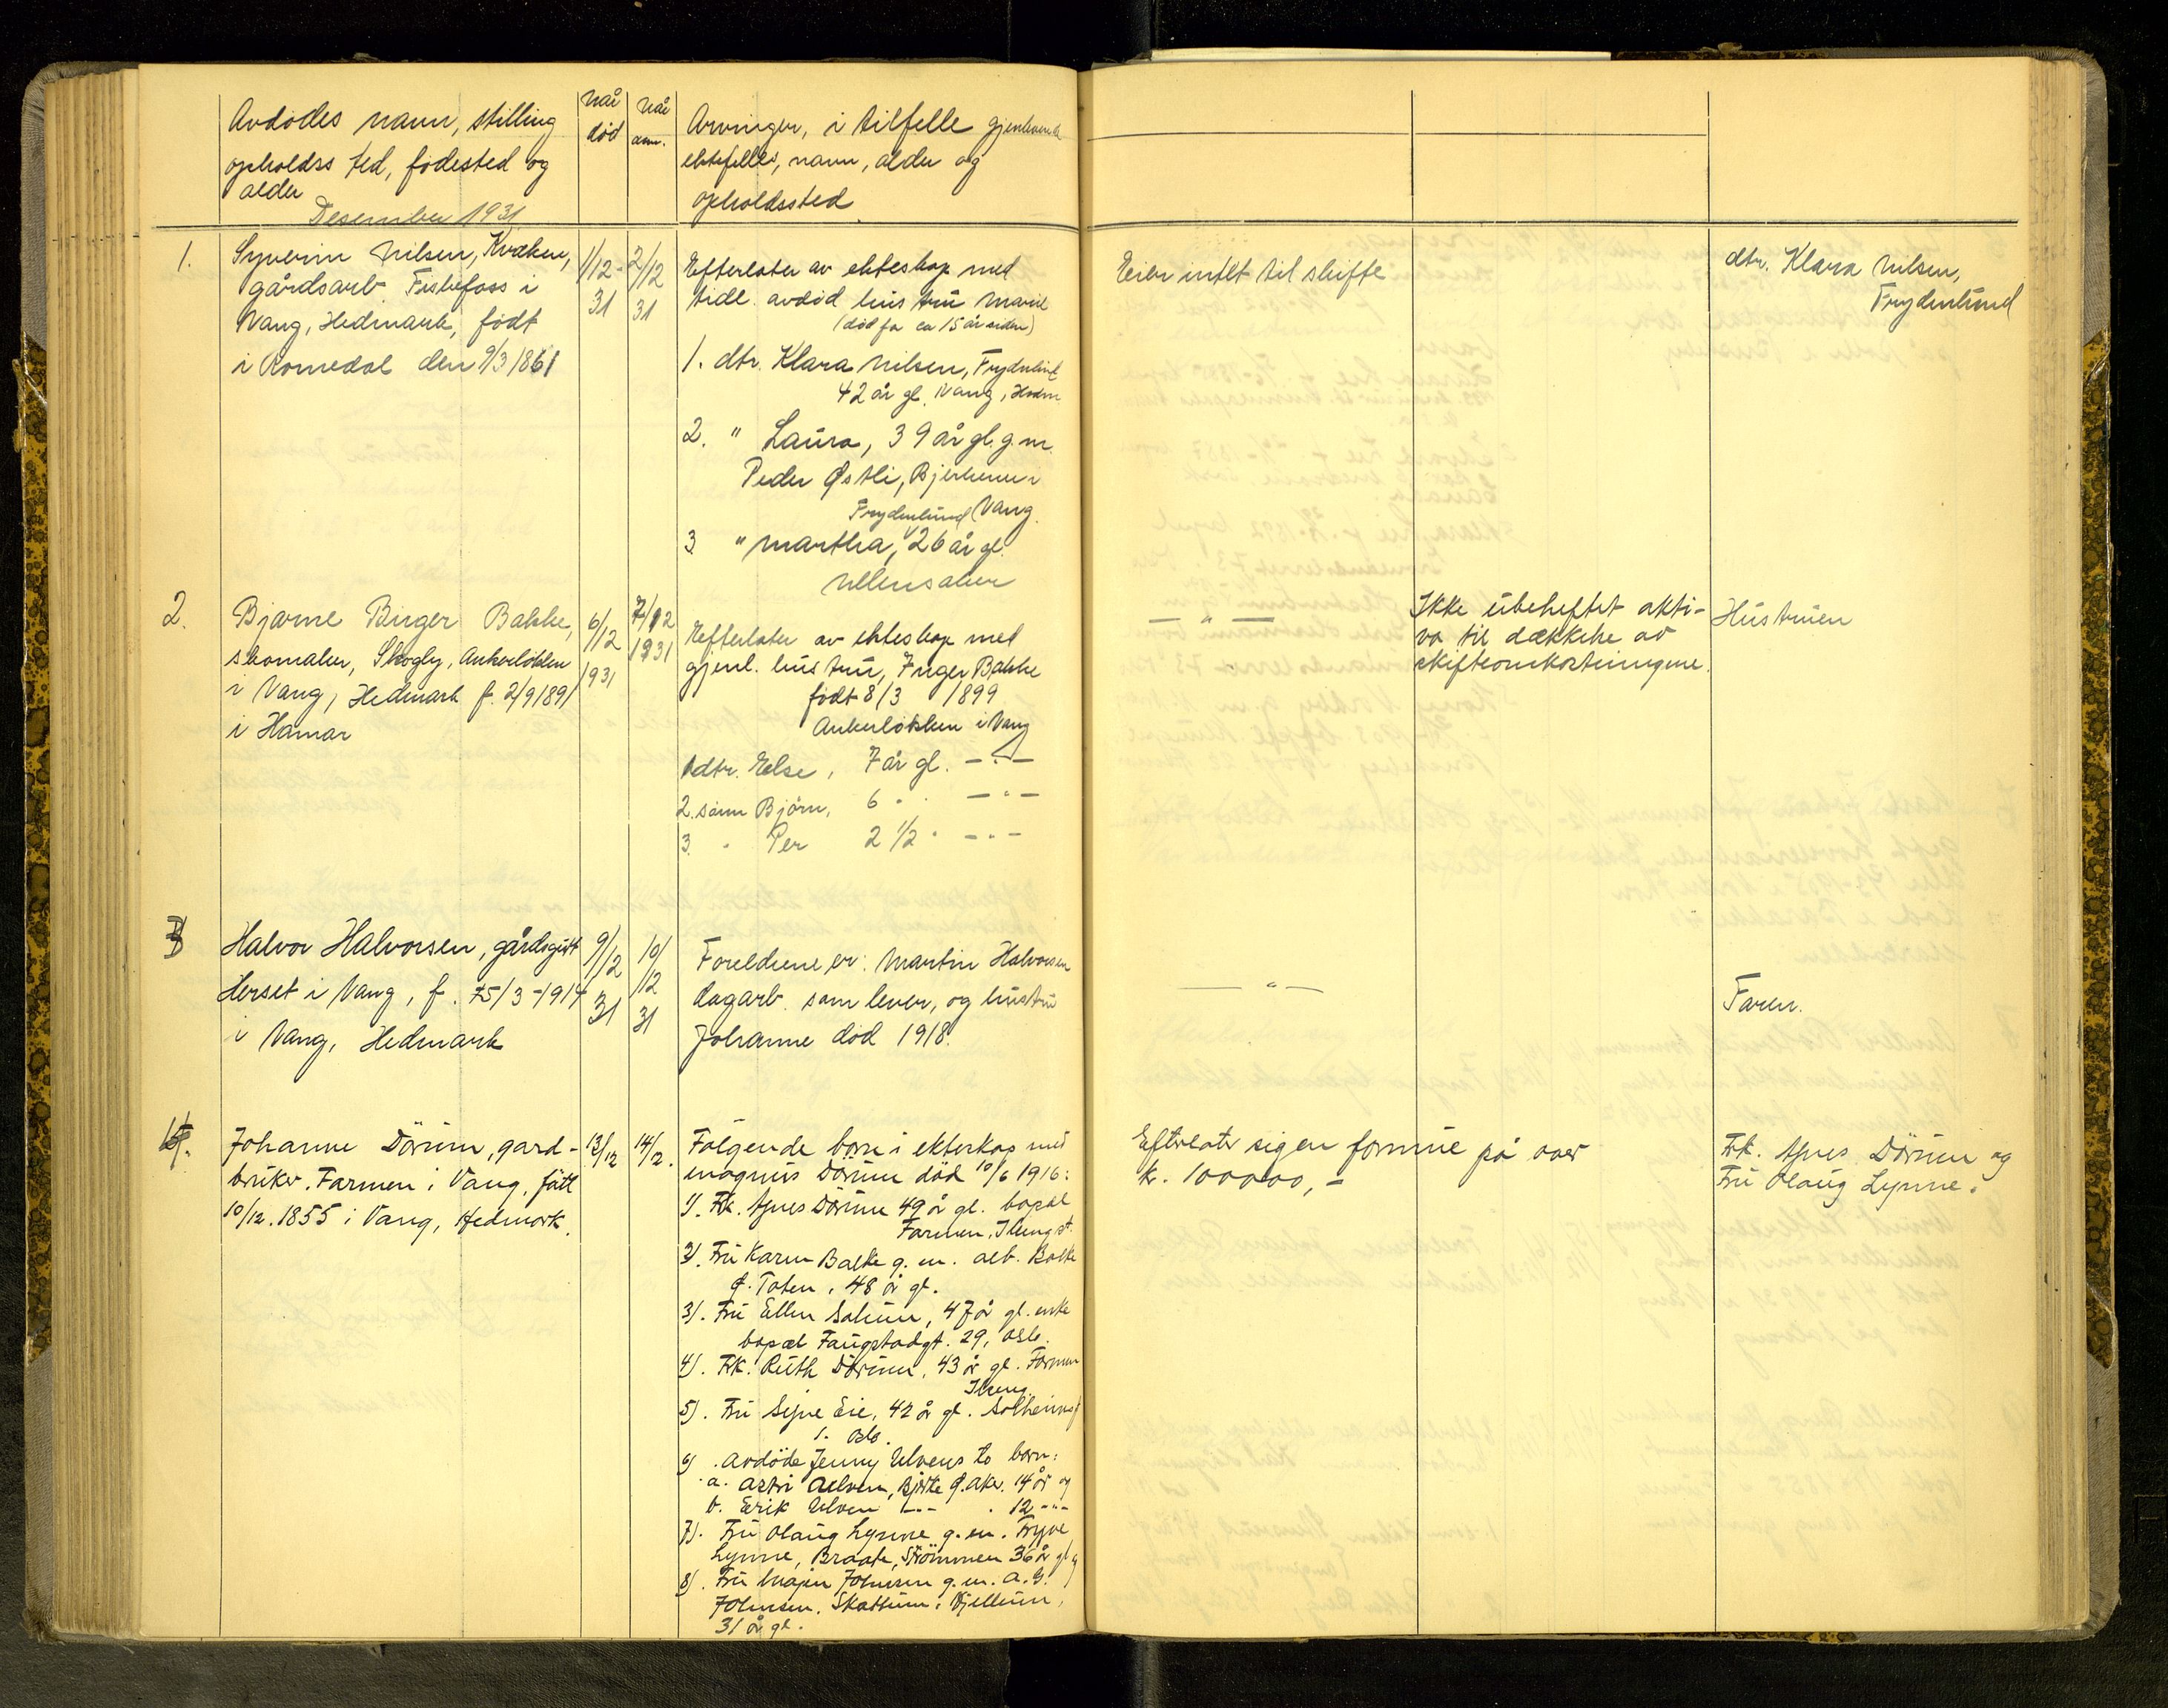 Avdødes navn, stilling
opholdssted, fødested og
alder
Desember 1931
når
død
når
anm.
Arvinger, i tilfelle gjenlevende
ektefelles, navn, alder og
opholdssted
1.
Syverin Nilsen, Kvæken,
gårdsarb. Fiskefoss i
Vang, Hedmark, født
i Romedal den 9/3 1861
1/12-
31
2/12
31
Efterlater av ekteskap med
tidl. avdød hustru Marie
(død for ca 15 år siden)
1. dtr. Klara Nilsen, Frydenlund
42 år gl. Vang, Hedm
2. " Laura, 39 år gl. g.m.
Peder Østli, Bjerkenes i
Frydenlund Vang.
3. " Martha, 26 år gl.
Ullensaker
Eier intet til skifte
dtr. Klara Nilsen,
Frydenlund
2.
Bjarne Birger Bakke,
skomaker, Skogly, Ankerløkken
i Vang, Hedmark f. 2/9 1891
i Hamar
6/
12
1931
7/12
1931
Efterlater av ekteskap med
gjenl. hustru, Inger Bakke
født 8/3 1899
Ankerløkken i Vang
1 dtr. Else, 7 år gl. — " —
2. sønn Bjørn, 6 " " — " —
3. " Per 2 1/2 " — " —
— " —
Ikke ubeheftet akti-
va til dækkelse av
skifteomkostningene.
Hustruen
3
Halvor Halvorsen, gårdsgutt
Herset i Vang, f. 15/3-1914
i Vang, Hedmark
9/12
31
10/
12
31
Foreldrene er: Martin Halvorsen
dagarb. som lever, og hustru
Johanne død 1918.
— " —
Faren.
4.
Johanne Dørum, gard-
bruker. Farmen i Vang, født
10/12. 1855 i Vang, Hedmark.
13/12
14/12.
Følgende barn i ekteskap med
Magnus Dørum død 10/6 1916:
1). Frk. Agnes Dørum 49 år gl. bopæl
Farmen, Ilseng st.
2). Fru Karen Balke g. m. alb. Balke
Ø. Toten, 48 år gl.
3). Fru Ellen Solum, 47 år gl. enke
bopæl Faugstadgt. 29, Oslo.
4). Frk. Ruth Dørum, 43 år gl. Farmen
Ilseng.
5). Fru Signe Eie, 42 år gl. Solheimsgt
1. Oslo.
6). Avdøde Jenny Ulvens to barn:
a. Astri Ulven, Bjerke Ø. Aker. 14 år og
b. Erik Ulven — " — 12 — " —
7). Fru Olaug Lynne g. m. Trygve
Lynne, Braate, Strømmen 36 år gl. og
8). Fru Majen Johnsen g. m. A. G.
Johnsen. Skattum i Vjellum,
31 år gl.
Efterlater sig en formue på over
kr. 100000,-
Frk. Agnes Dørum og
Fru Olaug Lynne.